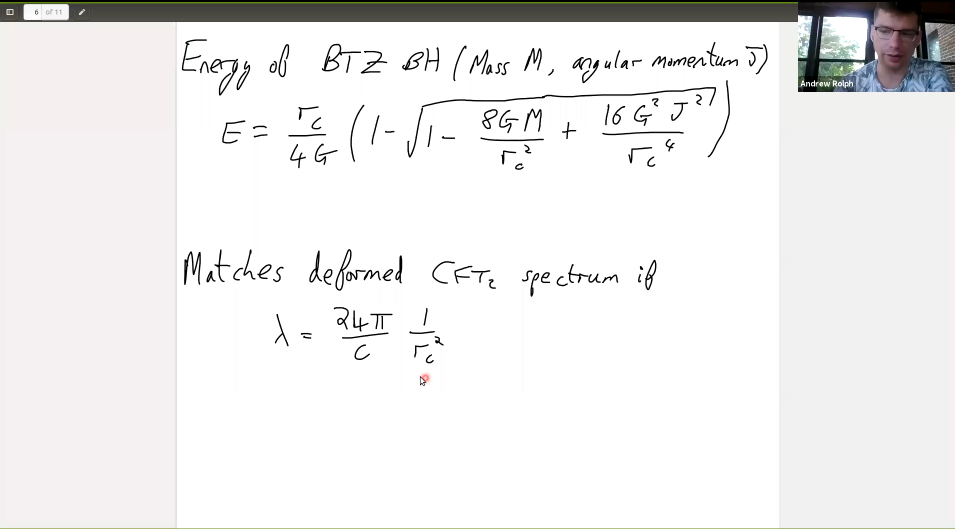 6 of 11
Andrew Rolph
Energy of BTZ BH (Mass M, angular momentum J)
E = r_c / 4G (1 - √(1 - 8GM / r_c² + 16 G² J² / r_c⁴))
Matches deformed CFT₂ spectrum if
λ = 24π / c 1 / r_c²